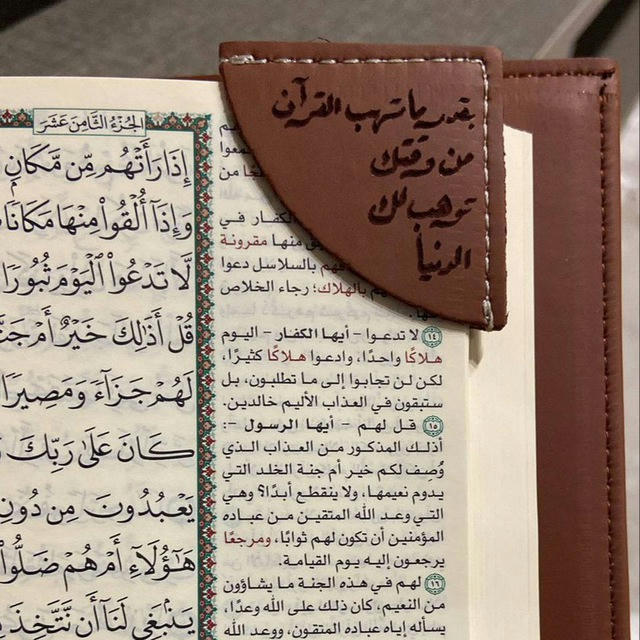 بقدر ما تهب القرآن
من وقتك
توهب لك
الدنيا
الجزء الثامن عشر
إِذَا رَأَتْهُم مِّن مَّكَانٍ
وَإِذَا أُلْقُوا مِنْهَا مَكَانًا
لَّا تَدْعُوا الْيَوْمَ ثُبُورًا
قُلْ أَذَٰلِكَ خَيْرٌ أَمْ
لَهُمْ جَزَاءً وَمَصِيرًا
كَانَ عَلَىٰ رَبِّكَ
يَعْبُدُونَ مِن دُونِ
هَٰؤُلَاءِ أَمْ هُمْ ضَلُّوا
يَنبَغِي لَنَا أَن نَّتَّخِذَ
الكفار في
منها مقرونة
بالسلاسل دعوا
بالهلاك؛ رجاء الخلاص
١٤ لا تدعوا - أيها الكفار - اليوم
هلاكًا واحدًا، وادعوا هلاكًا كثيرًا،
لكن لن تجابوا إلى ما تطلبون، بل
ستبقون في العذاب الأليم خالدين.
١٥ قل لهم - أيها الرسول -:
أذلك المذكور من العذاب الذي
وُصِف لكم خير أم جنة الخلد التي
يدوم نعيمها، ولا ينقطع أبدًا؟ وهي
التي وعد الله المتقين من عباده
المؤمنين أن تكون لهم ثوابًا، ومرجعًا
يرجعون إليه يوم القيامة.
١٦ لهم في هذه الجنة ما يشاؤون
من النعيم، كان ذلك على الله وعدًا،
يسأله إياه عباده المتقون، ووعد الله